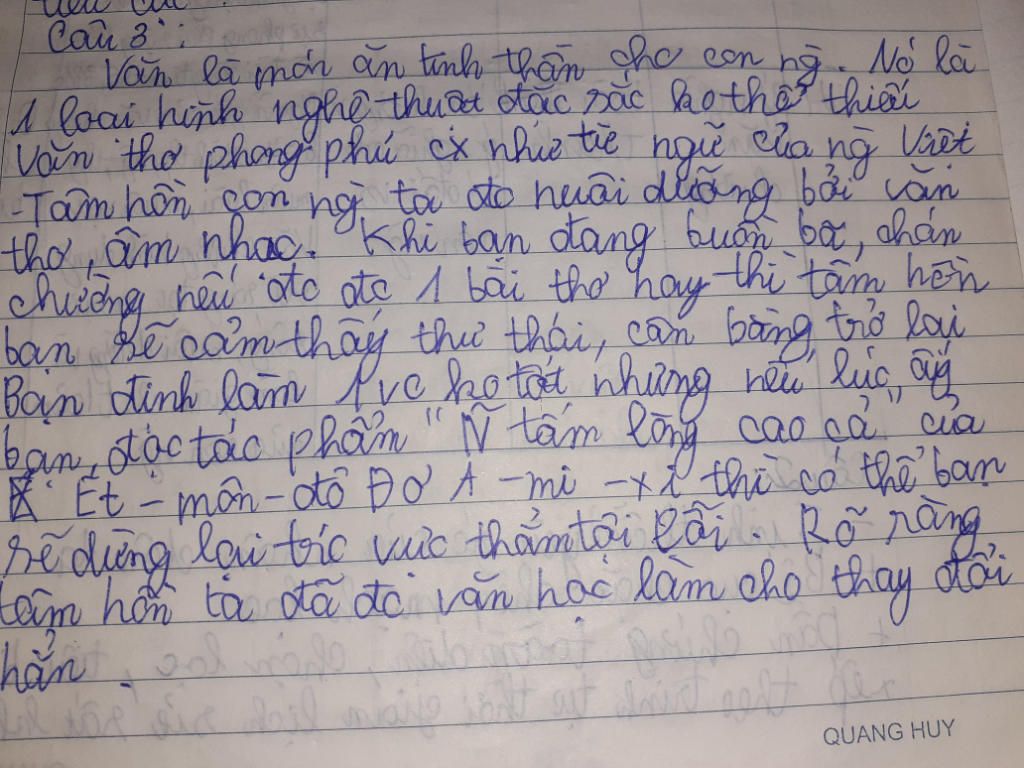 Câu 3:
Văn là món ăn tinh thần cho con ng. Nó là
1 loại hình nghệ thuật đặc sắc ko thể thiếu
văn thơ phong phú cx như từ ngữ của ng Việt
- Tâm hồn con ng ta đc nuôi dưỡng bởi văn
thơ, âm nhạc. Khi bạn đang buồn bã, chán
chường nếu đc đc 1 bài thơ hay thì tâm hồn
bạn sẽ cảm thấy thư thái, cân bằng trở lại
Bạn định làm 1 vc ko tốt nhưng nếu lúc ấy
bạn đọc tác phẩm "N~ tấm lòng cao cả" của
Ét-môn-đô Đơ A-mi-xi thì có thể bạn
sẽ dừng lại trc vực thẳm tội lỗi. Rõ ràng
tâm hồn ta đã đc văn học làm cho thay đổi
hẳn.
QUANG HUY